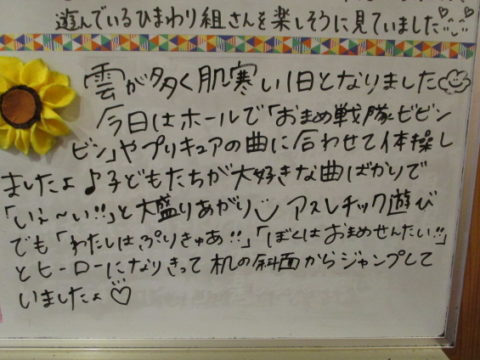 遊んでいるひまわり組さんを楽しそうに見ていました♡
雲が多く肌寒い1日となりました
今日はホールで「おまめ戦隊ビビン
ビン」やプリキュアの曲に合わせて体操し
ましたよ♪子どもたちが大好きな曲ばかりで
「いえ〜い!!」と大盛りあがり アスレチック遊び
でも「わたしはぷりきゅあ!!」「ぼくはおまめせんたい!!」
とヒーローになりきって机の斜面からジャンプして
いましたよ♡